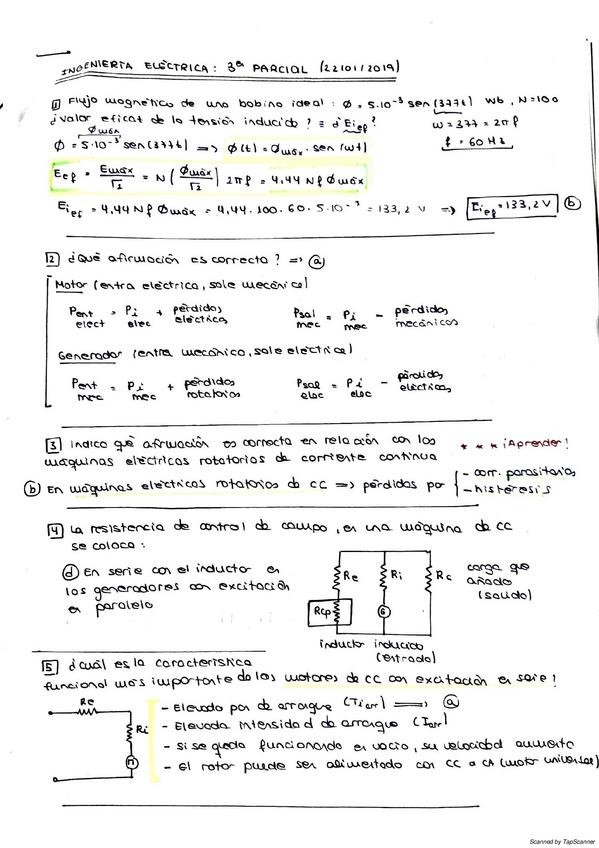 INGENIERÍA ELÉCTRICA: 3er PARCIAL (22/01/2019)
1 Flujo magnético de una bobina ideal: Φ = 5·10⁻³ sen(377t) wb, N=100
¿valor eficaz de la tensión inducida? ≡ ¿Eief?
Φmáx
ω = 377 = 2πf
Φ = 5·10⁻³ sen(377t) ⟹ Φ(t) = Φmáx · sen(ωt)
f = 60 Hz
Eef = Emáx/√2 = N (Φmáx/√2) 2πf = 4,44 N f Φmáx
Eief = 4,44 N f Φmáx = 4,44 · 100 · 60 · 5·10⁻³ = 133,2 V ⟹ Eief = 133,2 V b
2 ¿Qué afirmación es correcta? ⟹ a
Motor (entra eléctrica, sale mecánica)
Pent elect = Pi elec + pérdidas eléctricas
Psal mec = Pi mec − pérdidas mecánicas
Generador (entra mecánica, sale eléctrica)
Pent mec = Pi mec + pérdidas rotatorias
Psal elec = Pi elec − pérdidas eléctricas
3 Indica qué afirmación es correcta en relación con las * * * ¡Aprender!
máquinas eléctricas rotatorias de corriente continua
b En máquinas eléctricas rotatorias de CC ⟹ pérdidas por { - corr. parasitarias
- histéresis
4 La resistencia de control de campo, en una máquina de CC
se coloca:
d En serie con el inductor en
los generadores con excitación
en paralelo
Re Ri Rc
Rcp G
carga que
añado
(salida)
inductor inducido
(entrada)
5 ¿Cuál es la característica
funcional más importante de los motores de CC con excitación en serie?
Re
Ri
M
- Elevado par de arranque (Tiarr) ⟹ a
- Elevada intensidad de arranque (Iarr)
- Si se queda funcionando en vacío, su velocidad aumenta
- El rotor puede ser alimentado con CC o CA (motor universal)
Scanned by TapScanner